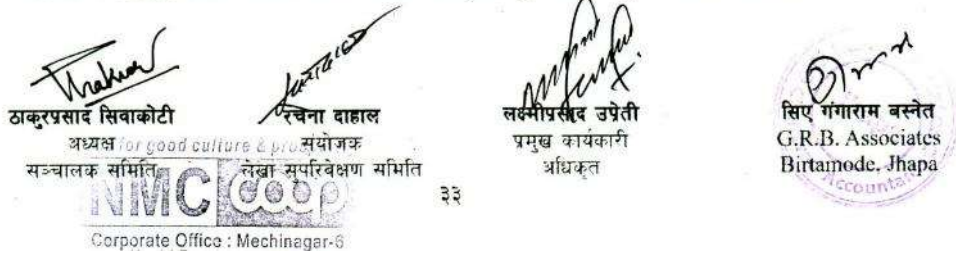 ठाकुरप्रसाद सिवाकोटी
अध्यक्ष
सञ्चालक समिति
रचना दाहाल
संयोजक
लेखा सुपरिवेक्षण समिति
लक्ष्मीप्रसाद उप्रेती
प्रमुख कार्यकारी
अधिकृत
सिए गंगाराम बस्नेत
G.R.B. Associates
Birtamode, Jhapa
for good culture &
NMC Coop
Corporate Office : Mechinagar-6
३३